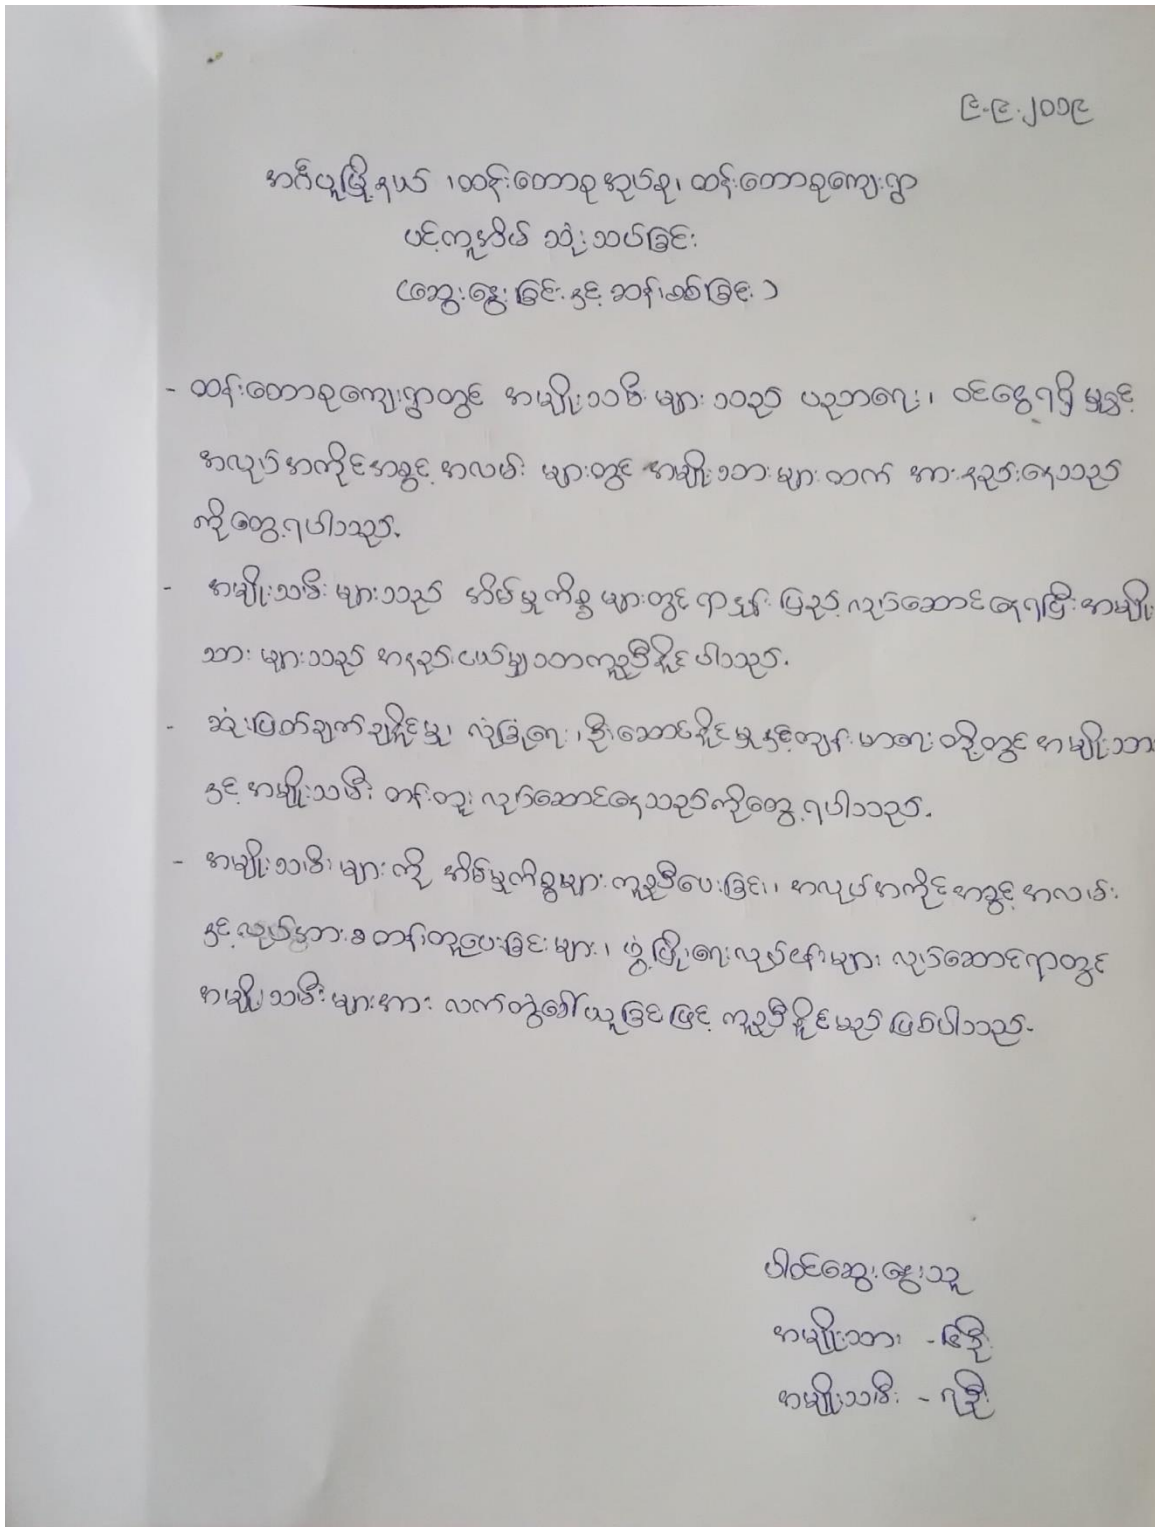 ၉.၉.၂၀၁၉
အင်္ဂပူမြို့နယ် ၊ ထန်းတောစုအုပ်စု ၊ ထန်းတောစုကျေးရွာ
ပင့်ကူအိမ် သုံးသပ်ခြင်း
(ဆွေးနွေးခြင်းနှင့် ဆန်းစစ်ခြင်း)
- ထန်းတောစုကျေးရွာတွင် အမျိုးသမီးများသည် ပညာရေး၊ ဝင်ငွေရရှိမှုနှင့်
အလုပ်အကိုင်အခွင့်အလမ်း များတွင် အမျိုးသားများထက် အားနည်းနေသည်
ကိုတွေ့ရပါသည်.
- အမျိုးသမီးများသည် အိမ်မှုကိစ္စများတွင် ရာနှုန်းပြည့်လုပ်ဆောင်နေရပြီး အမျိုး
သားများသည် အနည်းငယ်မျှသာကူညီနိုင်ပါသည်.
- ဆုံးဖြတ်ချက်ချနိုင်မှု၊ လုံခြုံရေး၊ ဦးဆောင်နိုင်မှုနှင့်ကျန်းမာရေး တို့တွင် အမျိုးသား
နှင့် အမျိုးသမီး တန်းတူ လုပ်ဆောင်နေသည်ကိုတွေ့ရပါသည်.
- အမျိုးသမီးများကို အိမ်မှုကိစ္စများ ကူညီပေးခြင်း၊ အလုပ်အကိုင်အခွင့်အလမ်း
နှင့်လုပ်အားခ တန်းတူပေးခြင်းများ၊ ဖွံ့ဖြိုးရေးလုပ်ငန်းများ လုပ်ဆောင်ရာတွင်
အမျိုးသမီးများအား လက်တွဲခေါ်ယူခြင်းဖြင့် ကူညီနိုင်မည်ဖြစ်ပါသည်.
ပါဝင်ဆွေးနွေးသူ
အမျိုးသား - ဦး
အမျိုးသမီး - ၇ဦး